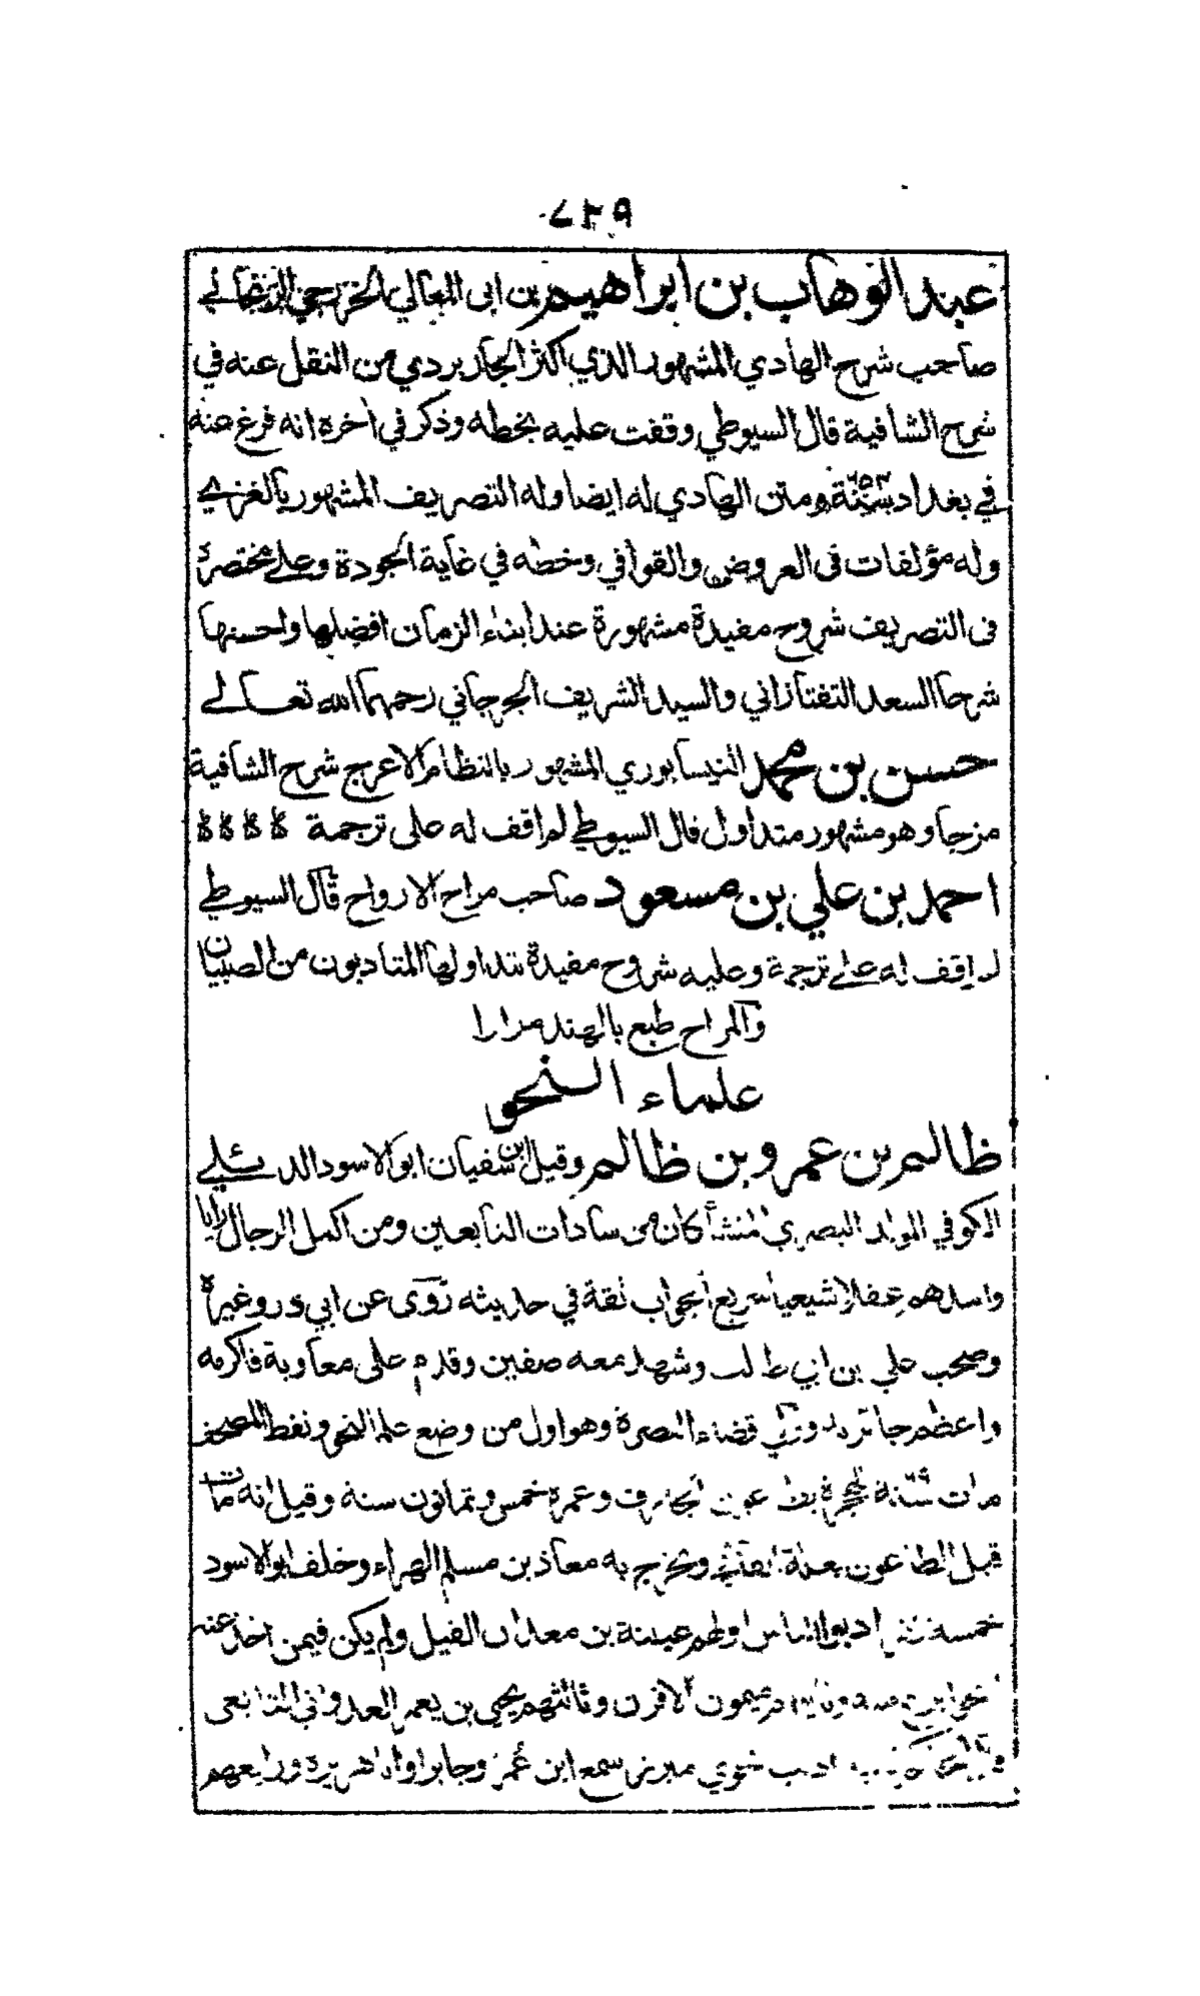 عبد الوهاب بن ابراهيم بن ابى المعالي الخزرجي الزنجاني
صاحب شرح الهادي المشهور الذي اكثر الجاربردي من النقل عنه في
شرح الشافية قال السيوطي وقفت عليه بخطه وذكر في اخره انه فرغ منه
في بغداد سنة ومتن الهادي له ايضا وله التصريف المشهور بالغزي
وله مؤلفات فى العروض والقوافي وخطه في غاية الجودة وعلى مختصره
فى التصريف شروح مفيدة مشهورة عند ابناء الزمان افضلها واحسنها
شرحا السعد التفتازاني والسيد الشريف الجرجاني رحمهما الله تعالى
حسن بن محمد النيسابوري المشهور بالنظام الاعرج شرح الشافية
مزجا وهو مشهور متداول قال السيوطي لم اقف له على ترجمة
احمد بن علي بن مسعود صاحب مراح الارواح قال السيوطي
لم اقف له على ترجمة وعليه شروح مفيدة تتداولها المتادبون من الصبيان
والمراح طبع بالهند مرارا
علماء النحو
ظالم بن عمرو بن ظالم وقيل ابن سفيان ابو الاسود الدئلي
الكوفي المولد البصري المنشأ كان من سادات التابعين ومن اكمل الرجال رايا
واسدهم عقلا شيعيا سريع الجواب ثقة في حديثه روى عن ابي ذر وغيره
وصحب علي بن ابي طالب وشهد معه صفين وقدم على معاوية فاكرمه
واعظم جائزته وولي قضاء البصرة وهو اول من وضع علم النحو ونقط المصحف
مات سنة للهجرة بطاعون الجارف وعمره خمس وثمانون سنة وقيل انه مات
قبل الطاعون بعلة وتخرج به معاذ بن مسلم الهراء وخلف ابو الاسود
خمسة ادبوا الناس اولهم عيينة بن معدان الفيل ولم يكن فيمن اخذ عنه
ميمون الاقرن وثالثهم يحيى بن يعمر العدواني التابعى
ادب نحوي مبرز سمع ابن عمر وجابرا وابا هريرة ورابعهم